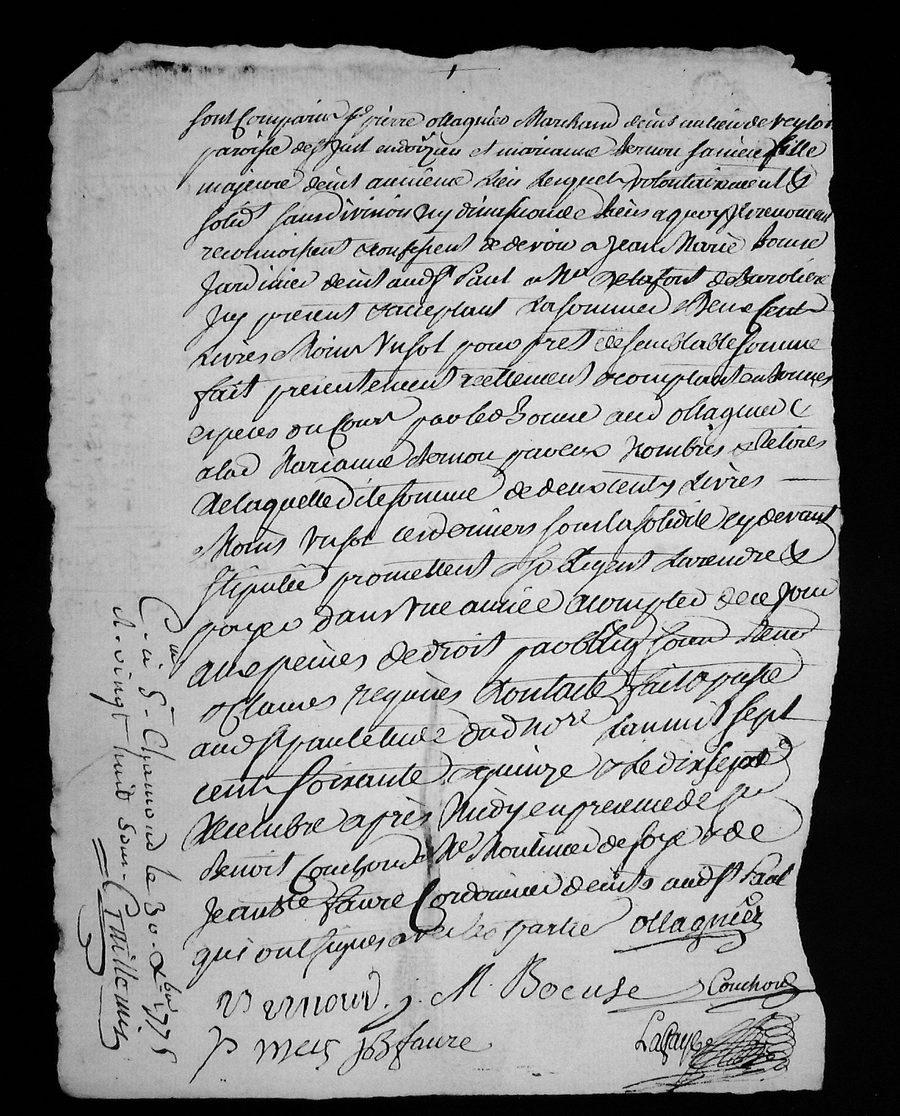 sont Comparu Sr pierre ollagnier Marchand demt au lieu de
paroise de St just en doizieu et marianne vernou sa niece fille
majeure demt au meme Lieu lesquels volontairement &
solidt sans division ny dimission de biens a quoy Ils renoncent
reconnoissent & confessent de devoir a jean Marie
Jardinier demt aud St Paul Mr Delafont de Baroliere
Icy present & acceptant La somme de Deux Cent
Livres Moins Un sol pour pret de semblable somme
fait presentement reellement & comptant en bonnes
especes du Cour par led aud ollagnier &
a lad Marianne vernou par eux Nombrés & Retirés
de laquelle dite somme de deux cents Livres
Moins Un sol ces derniers sous la solidité cy devant
Stipulée promettent & sobligent La rendre &
payer dans une année a compter de ce jour
aux peines de droit par oblig
& Clauses requises fait & passé
aud St paul etude dud nore Lan mil sept
cent soixante & quinze & le dix sept
decembre apres Midy en presence de Sr
Benoit Couchoud Md Moulinier de soye & de
Jean bte faure Cordonnier demts aud St Paul
qui ont signés avec les partie ollagnier
vernou j. M. Bocuse Couchoud
p mets JBfaure
C.lé à St Chamond le 30 Xbre 1775
R. vingt huit sous Guillemin